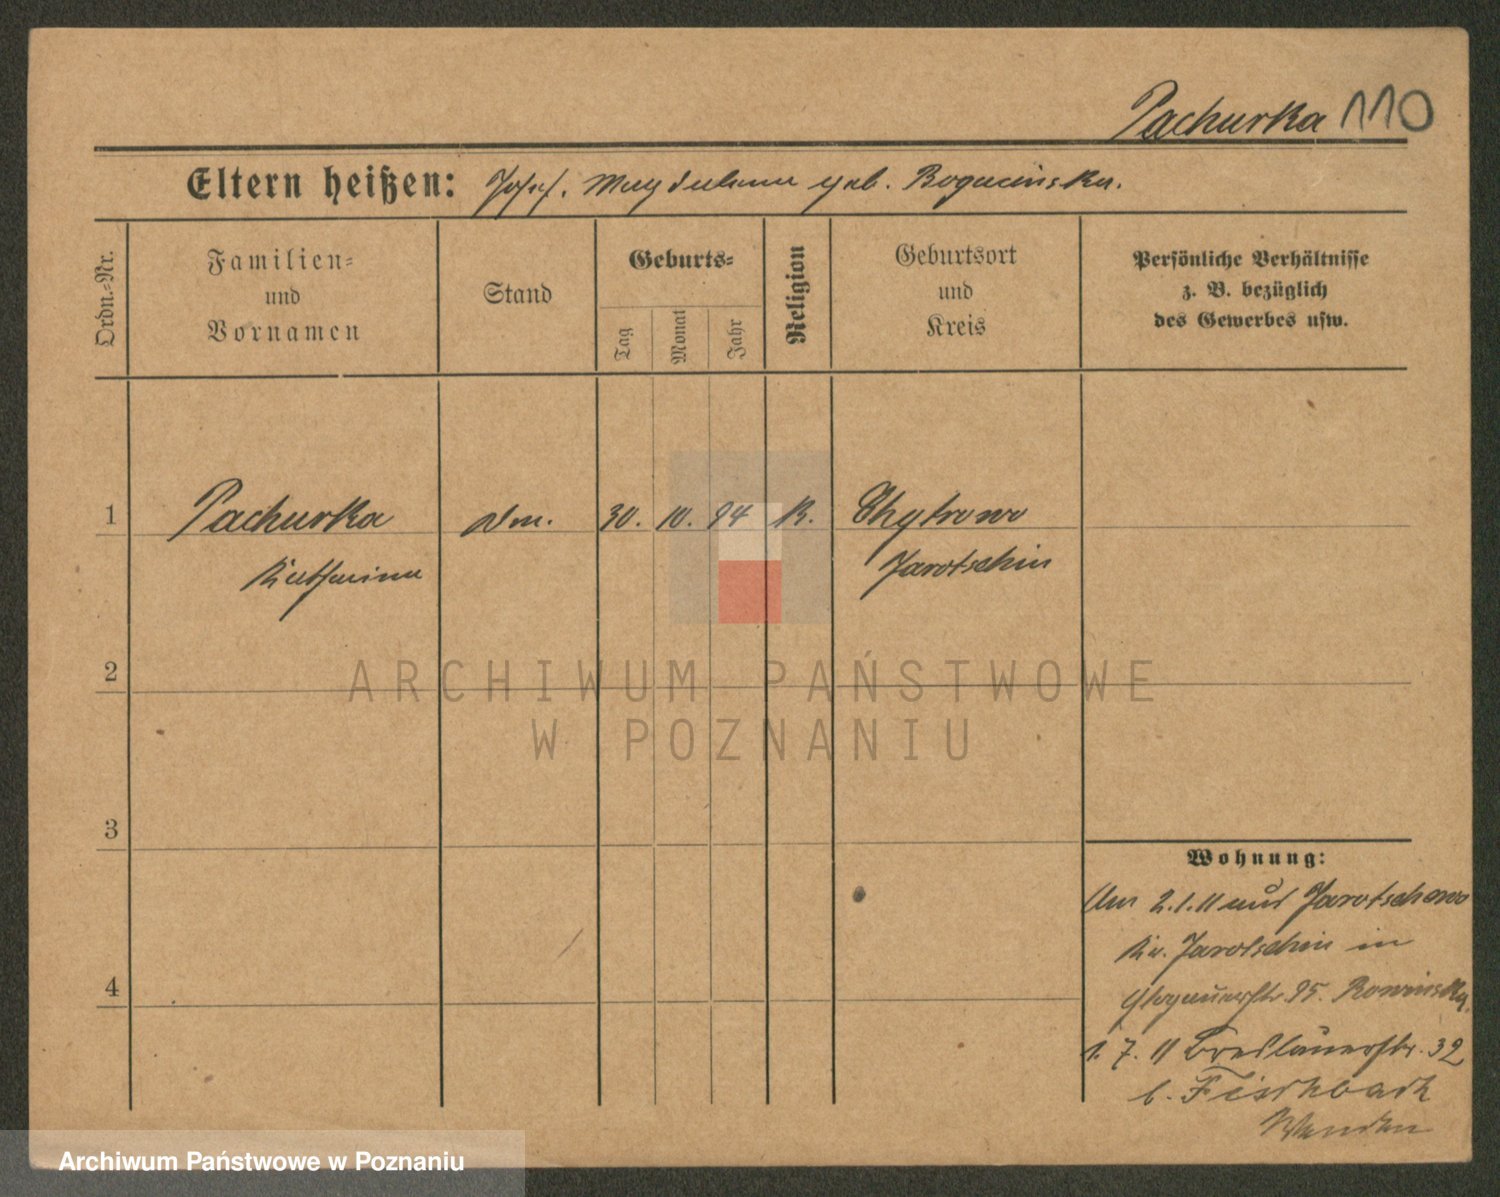 Pachurka 110
Eltern heißen: Josef. Magdalena geb. Bogacinska.
Ordn.-Nr.
Familien- und Vornamen
Stand
Geburts-
Tag
Monat
Jahr
Religion
Geburtsort und Kreis
Persönliche Verhältnisse
z. B. bezüglich
des Gewerbes usw.
1 Pachurka 30. 10. 94 K. Chytrowo
Katharina Jarotschin
2
ARCHIWUM PAŃSTWOWE
W POZNANIU
3
4
Wohnung:
Am 2.1.11 aus Jarotschewo
Kr. Jarotschin in
Glogauerstr. 95.
1. 7. 11 Breslauerstr. 32
b. Fischbach
Archiwum Państwowe w Poznaniu